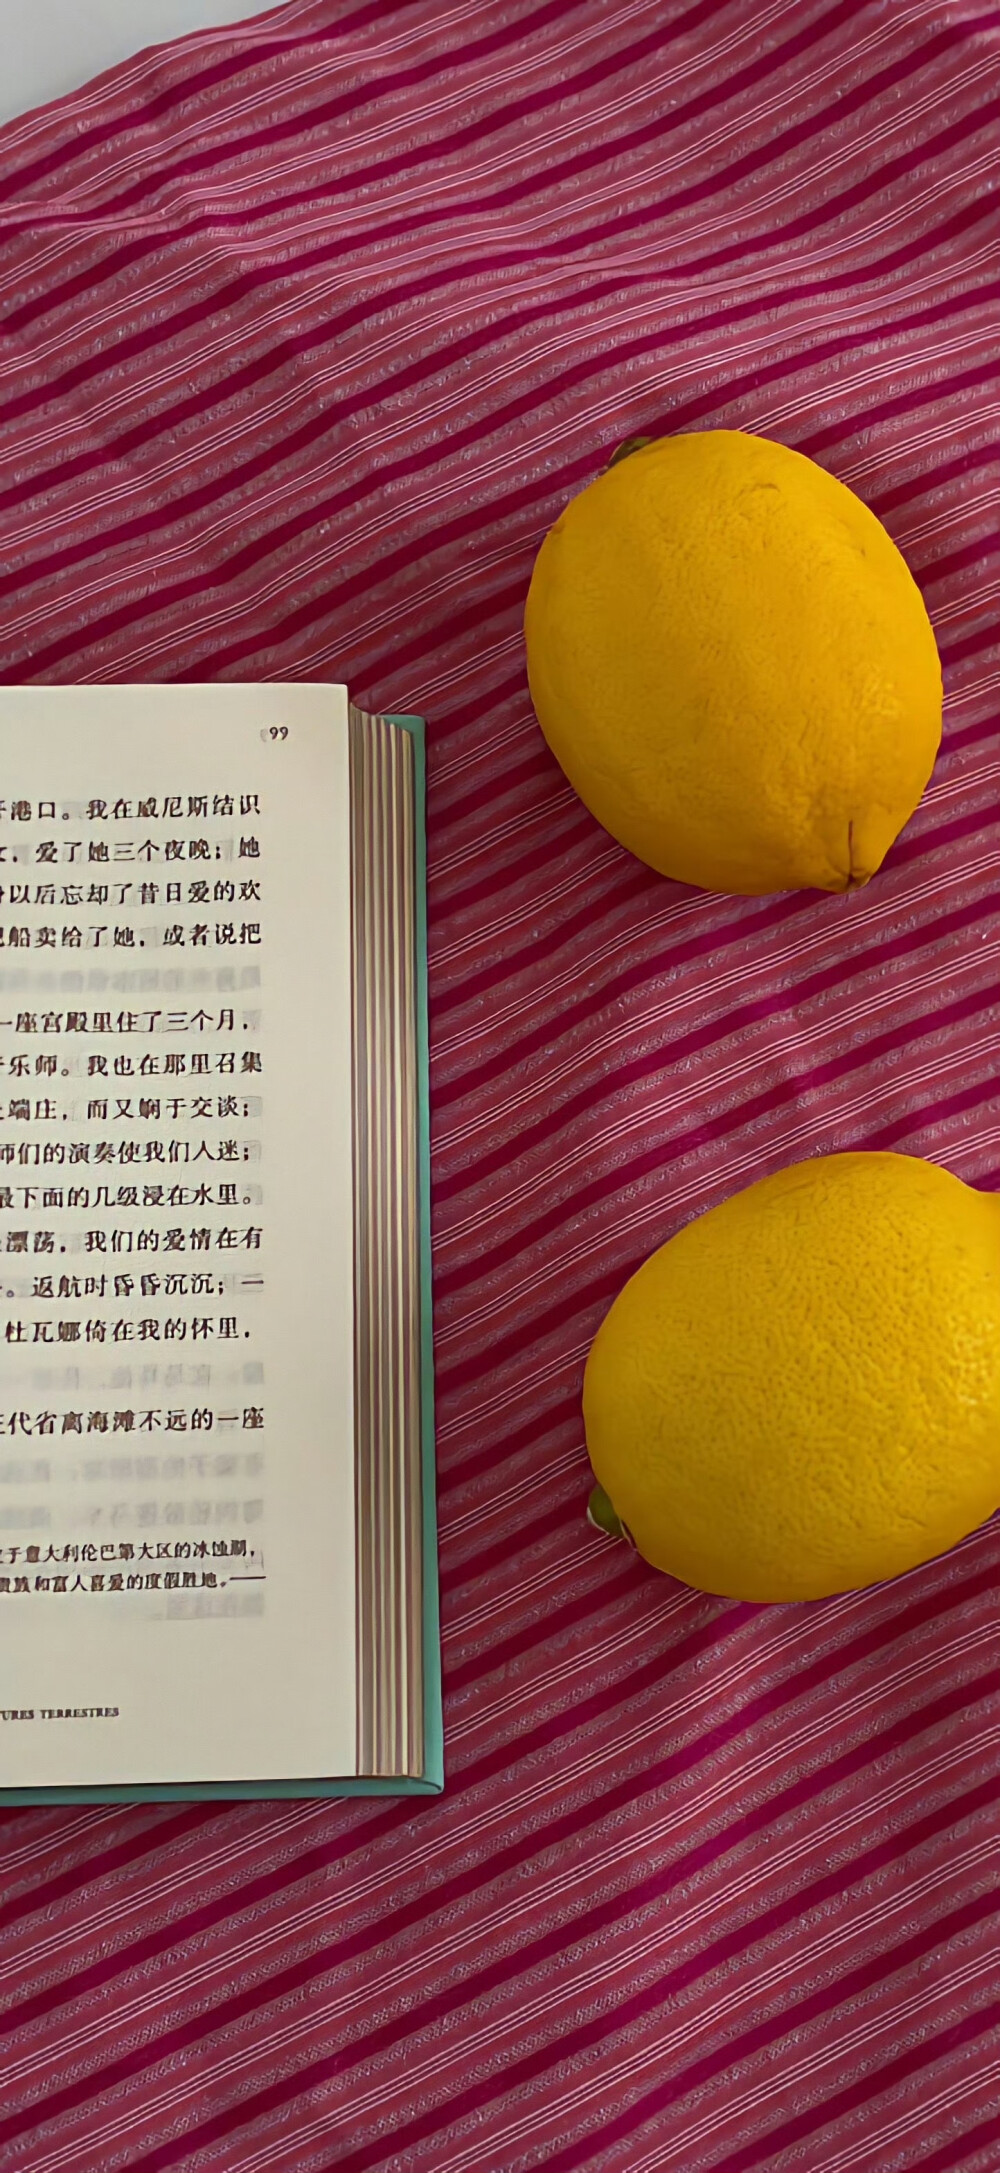 99
港口。我在威尼斯结识
，爱了她三个夜晚；她
以后忘却了昔日爱的欢
船卖给了她，或者说把
一座宫殿里住了三个月，
乐师。我也在那里召集
端庄，而又娴于交谈；
师们的演奏使我们入迷；
最下面的几级浸在水里。
漂荡，我们的爱情在有
。返航时昏昏沉沉；一
杜瓦娜倚在我的怀里，
代省离海滩不远的一座
于意大利伦巴第大区的冰蚀湖，
贵族和富人喜爱的度假胜地。——
TURES TERRESTRES